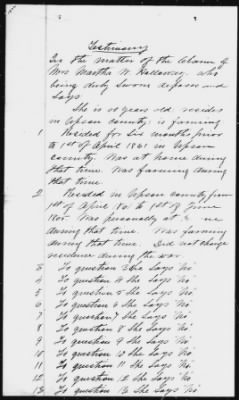 Testimony
In the matter of the Claim of
Mrs Martha W. Hallaway. who
being duly Sworn deposes and
Says
She is years old. resides
in Upson County; is farming
1 Resided for Six months prior
to 1st of April 1861 in Upson
county. Was at home during
that time. Was farming during
that time
2 Resided in Upson County from
1st of April 61 to 1st of June
1865. Was personally at
during that time. Was farming
during that time. Did not change
residence during the war
3 To question 3 She Says "No"
4 To question 4 She Says "No"
5 To question 5 She Says "No"
6 To question 6 She Says "No"
7 To question 7 She Says "No"
8 To question 8 She Says "No"
9 To question 9 She Says "No"
10 To question 10 She Says "No"
11 To question 11 She Says "No"
12 To question 12 She Says "No"
13 To question 13 She Says "No"